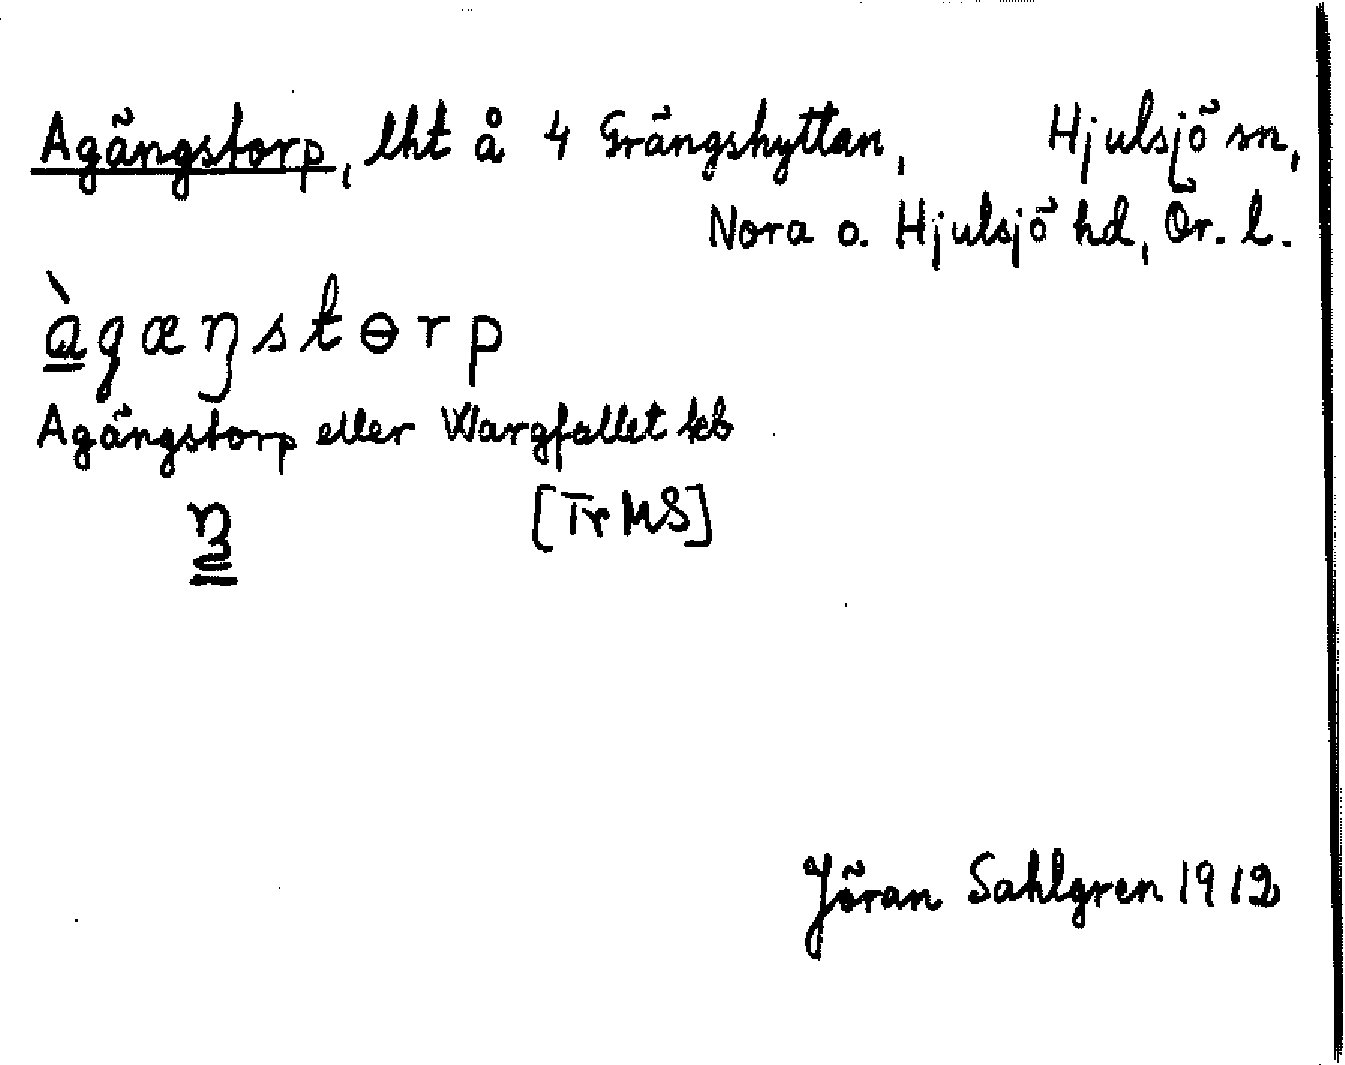 Agängstorp, lht å 4 Grängshyttan, Hjulsjö sn,
Nora o. Hjulsjö hd, Ör. l.
àgæŋstɵrp
Agängstorp eller Wargfallet kb
ŋ [Tr MS]
Jöran Sahlgren 1912